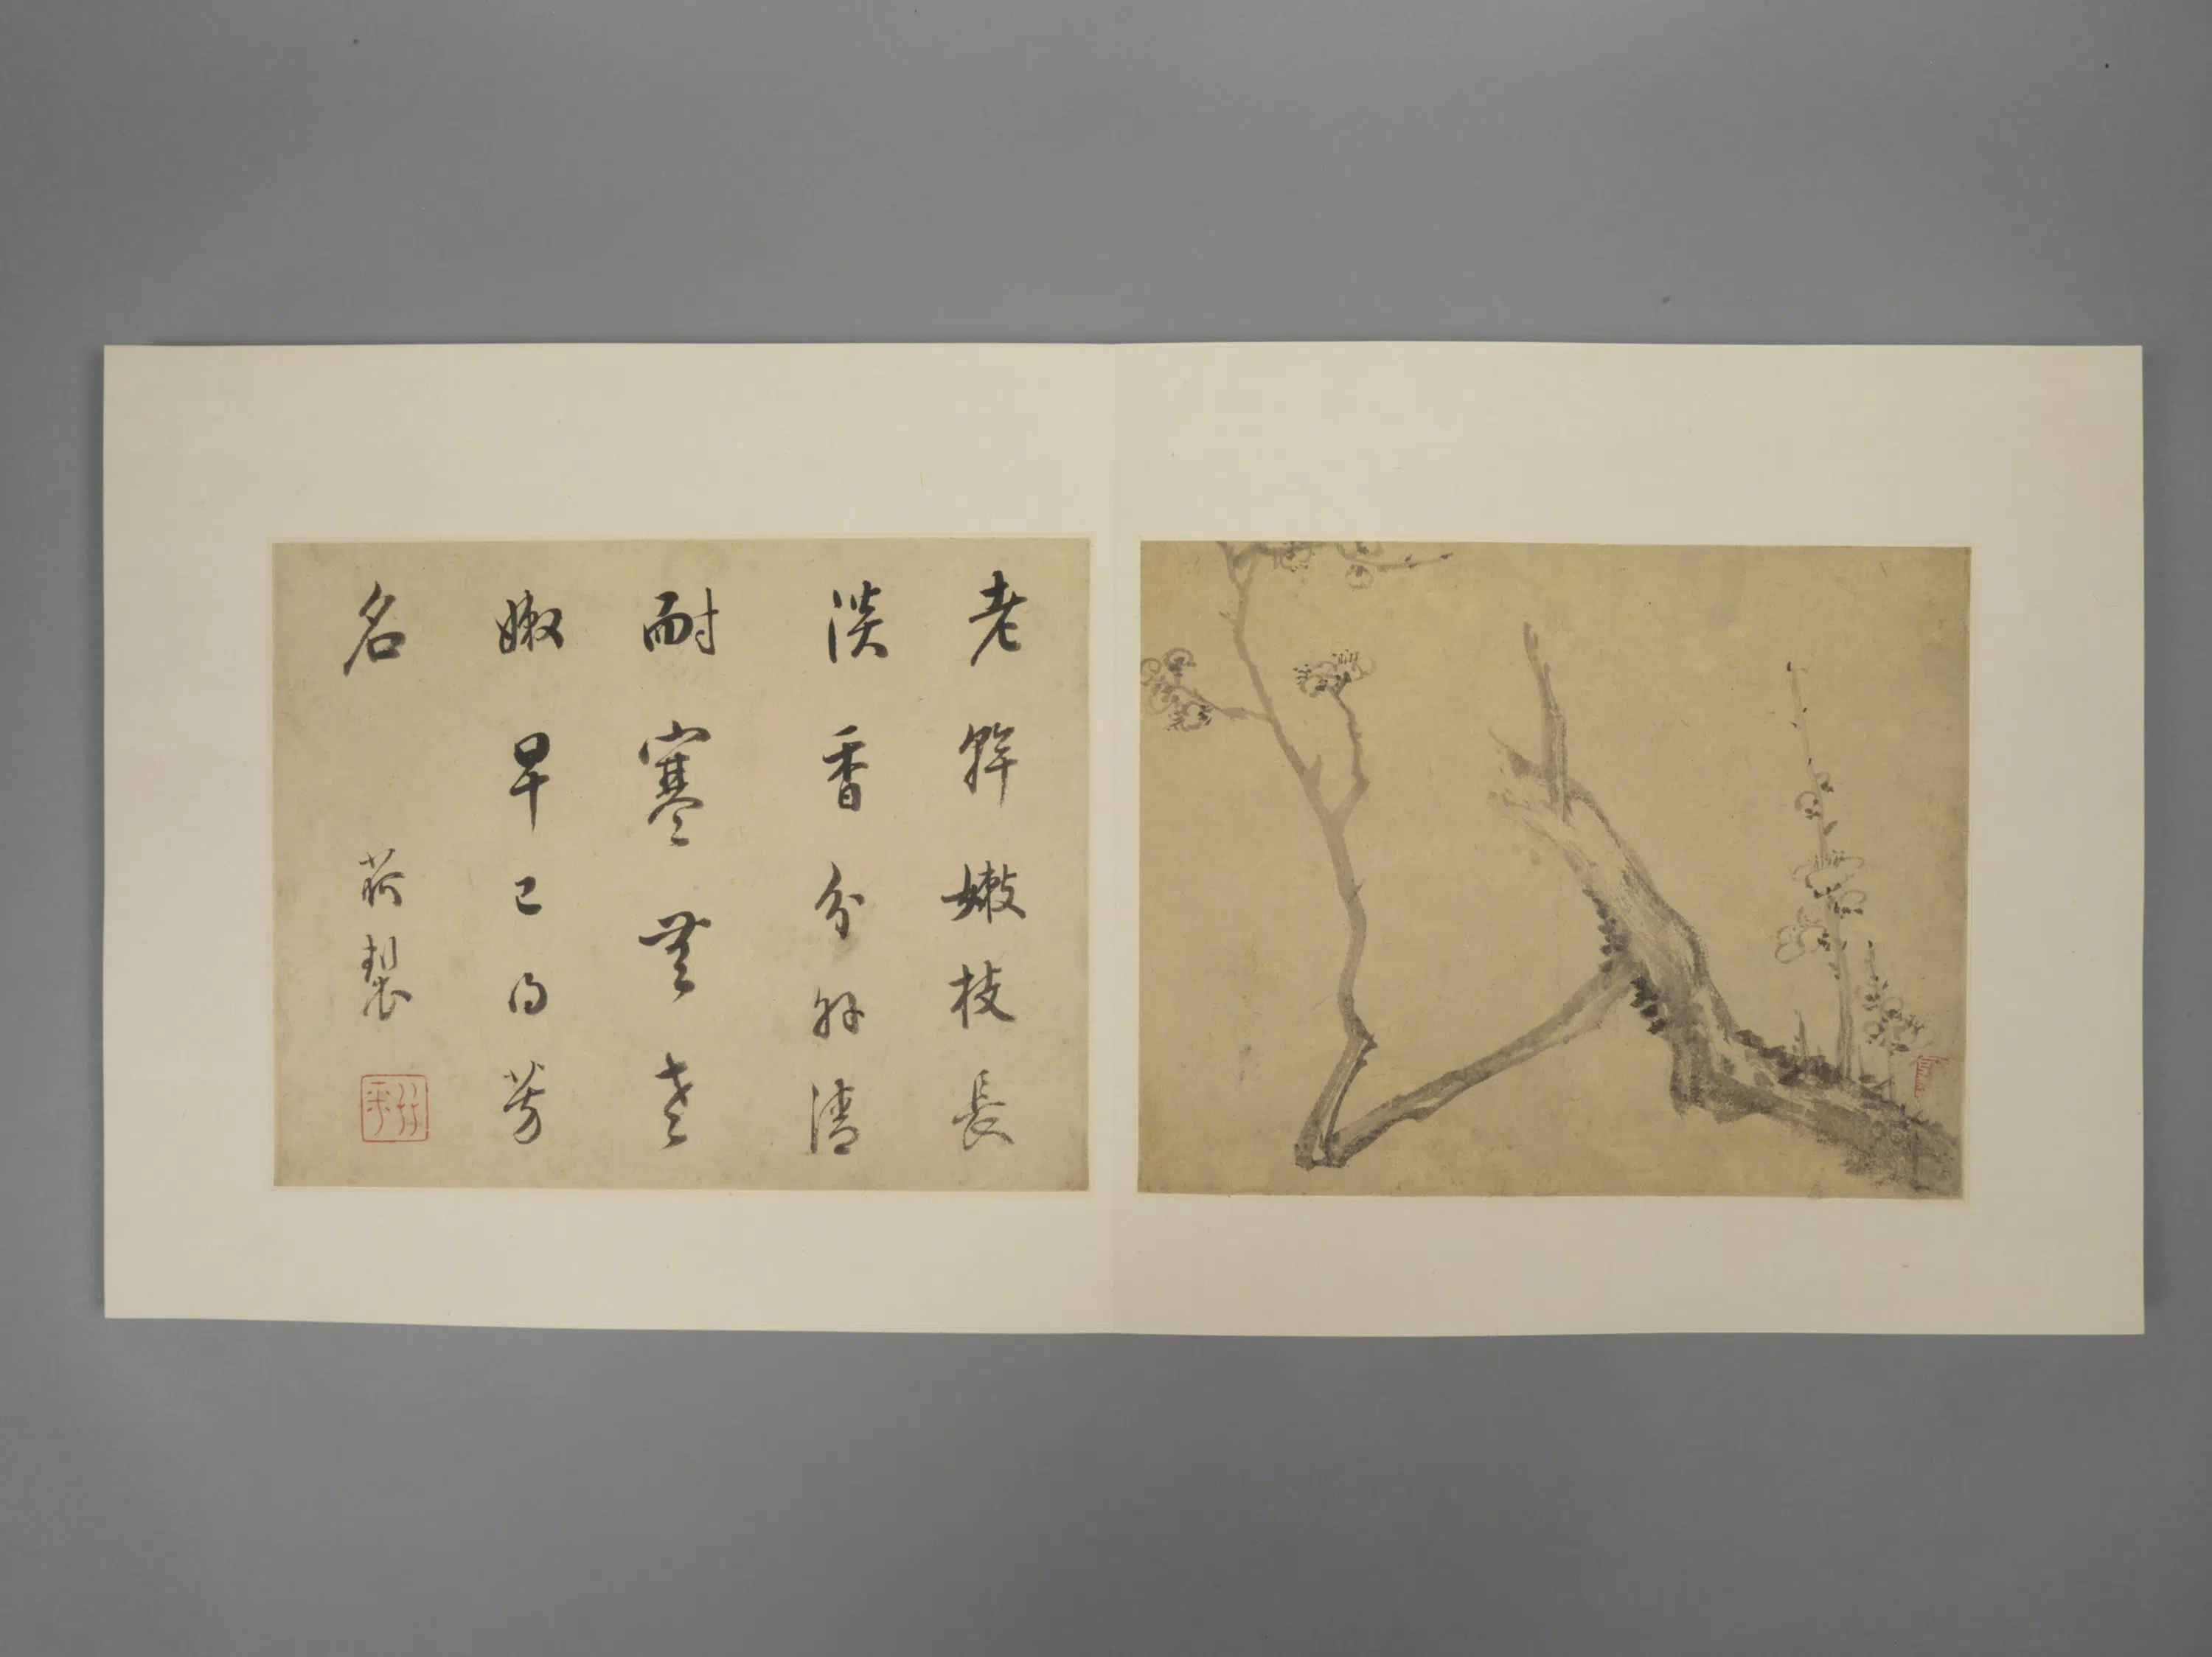 老幹嫩枝長
淡香分外清
耐寒無老
嫩早已得芳
名
荷製